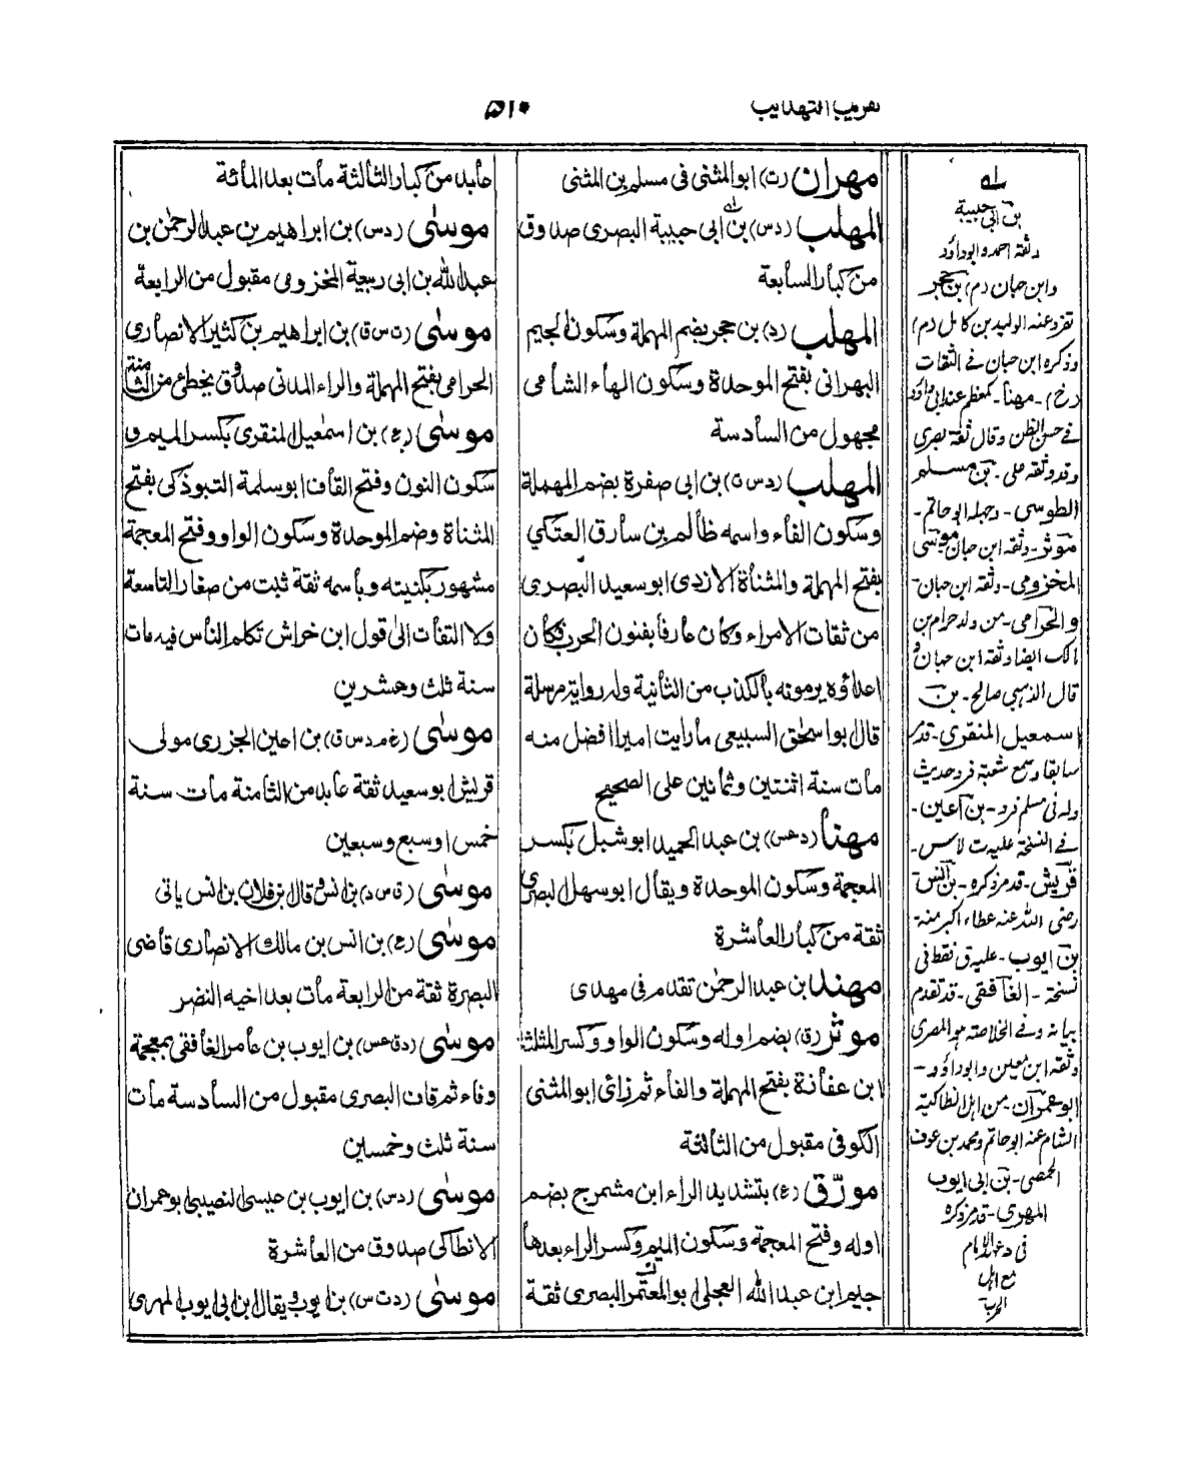 تقريب التهذيب
۵۱۰
مهران (ت) ابو المثنى فى مسلم بن المثنى
المهلب (د س) بن ابى حبيبة البصرى صدوق
من كبار السابعة
المهلب (د) بن حجر بضم المهملة وسكون الجيم
البهرانى بفتح الموحدة وسكون الهاء الشامى
مجهول من السادسة
المهلب (د س ت) بن ابى صفرة بضم المهملة
وسكون الفاء واسمه ظالم بن سارق العتكى
بفتح المهملة والمثناة الازدى ابو سعيد البصرى
من ثقات الامراء وكان عارفا بفنون الحرب فكان
اعداؤه يرمونه بالكذب من الثانية وله رواية مرسلة
قال ابو اسحٰق السبيعى مارايت اميرا افضل منه
مات سنة اثنتين وثمانين على الصحيح
مهنأ (د عس) بن عبد الحميد ابو شبل بكسر
المعجمة وسكون الموحدة ويقال ابو سهل البصرى
ثقة من كبار العاشرة
مهند بن عبد الرحمٰن تقدم فى مهدى
موثر (ق) بضم اوله وسكون الواو وكسر المثلثة
ابن عفازة بفتح المهملة والفاء ثم زائ ابو المثنى
الكوفى مقبول من الثالثة
مورّق (ع) بتشديد الراء ابن مشمرج بضم
اوله وفتح المعجمة وسكون الميم وكسر الراء بعدها
جيم ابن عبد الله العجلى ابو المعتمر البصرى ثقة
عابد من كبار الثالثة مات بعد المائة
موسٰى (د س) بن ابراهيم بن عبد الرحمٰن بن
عبد الله بن ابى ربيعة المخزومى مقبول من الرابعة
موسٰى (ت س ق) بن ابراهيم بن كثير الانصارى
الحرامى بفتح المهملة والراء المدنى صدوق يخطئ من الثامنة
موسٰى (ع) بن اسمٰعيل المنقرى بكسر الميم و
سكون النون وفتح القاف ابو سلمة التبوذكى بفتح
المثناة وضم الموحدة وسكون الواو وفتح المعجمة
مشهور بكنيته وباسمه ثقة ثبت من صغار التاسعة
ولا التفات الى قول ابن خراش تكلم الناس فيه مات
سنة ثلث وعشرين
موسٰى (خ م د س ق) بن اعين الجزرى مولى
قريش ابو سعيد ثقة عابد من الثامنة مات سنة
خمس او سبع وسبعين
موسٰى بن انس وقال ابن فلان بن انس ياتى
موسٰى (ع) بن انس بن مالك الانصارى قاضى
البصرة ثقة من الرابعة مات بعد اخيه النضر
موسٰى (د ق عس) بن ايوب بن عامر الغافقى بمعجمة
وفاء ثم قاف البصرى مقبول من السادسة مات
سنة ثلث وخمسين
موسٰى (د س) بن ايوب بن عيسى النصيبى ابو عمران
الانطاكى صدوق من العاشرة
موسٰى (د ت س) بن ايوب ويقال ابن ابى ايوب المهرى
له
بن ابى حبيبة
وثقه احمد وابو داؤد
وابن حبان (م) بن حجر
تفرد عنه الوليد بن كامل (م)
وذكره ابن حبان فى الثقات
(خ) - مهنأ - كمعظم عند ابى داؤد
فى حسن الظن وقال ثقة بصرى
وقد وثقه على - بن مسلم
الطوسى - وجهله ابو حاتم -
موثر - وثقه ابن حبان موسى
المخزومى - وثقه ابن حبان -
والحرامى - من ولد حرام بن
الك ايضا وثقه ابن حبان و
قال الذهبى صالح - بن
اسمعيل المنقرى - قدم
سابقا وسمع شعبة فرد حديث
وله فى مسلم فرد - بن اعين -
فى النسخة عليه ت لاس -
قريش - قدم ذكره - بن انس
رضى الله عنه عطاء اكبر منه
بن ايوب - عليه ق فقط فى
نسخة - الغافقى - قد تقدم
بيانه وفى الخلاصة هو المصرى
وثقه ابن معين وابو داؤد -
ابو عمران - من اهل انطاكية
الشام عنه ابو حاتم ومحمد بن عوف
الحمصى - بن ابى ايوب
المهرى - قدم ذكره
فى
مع اهل